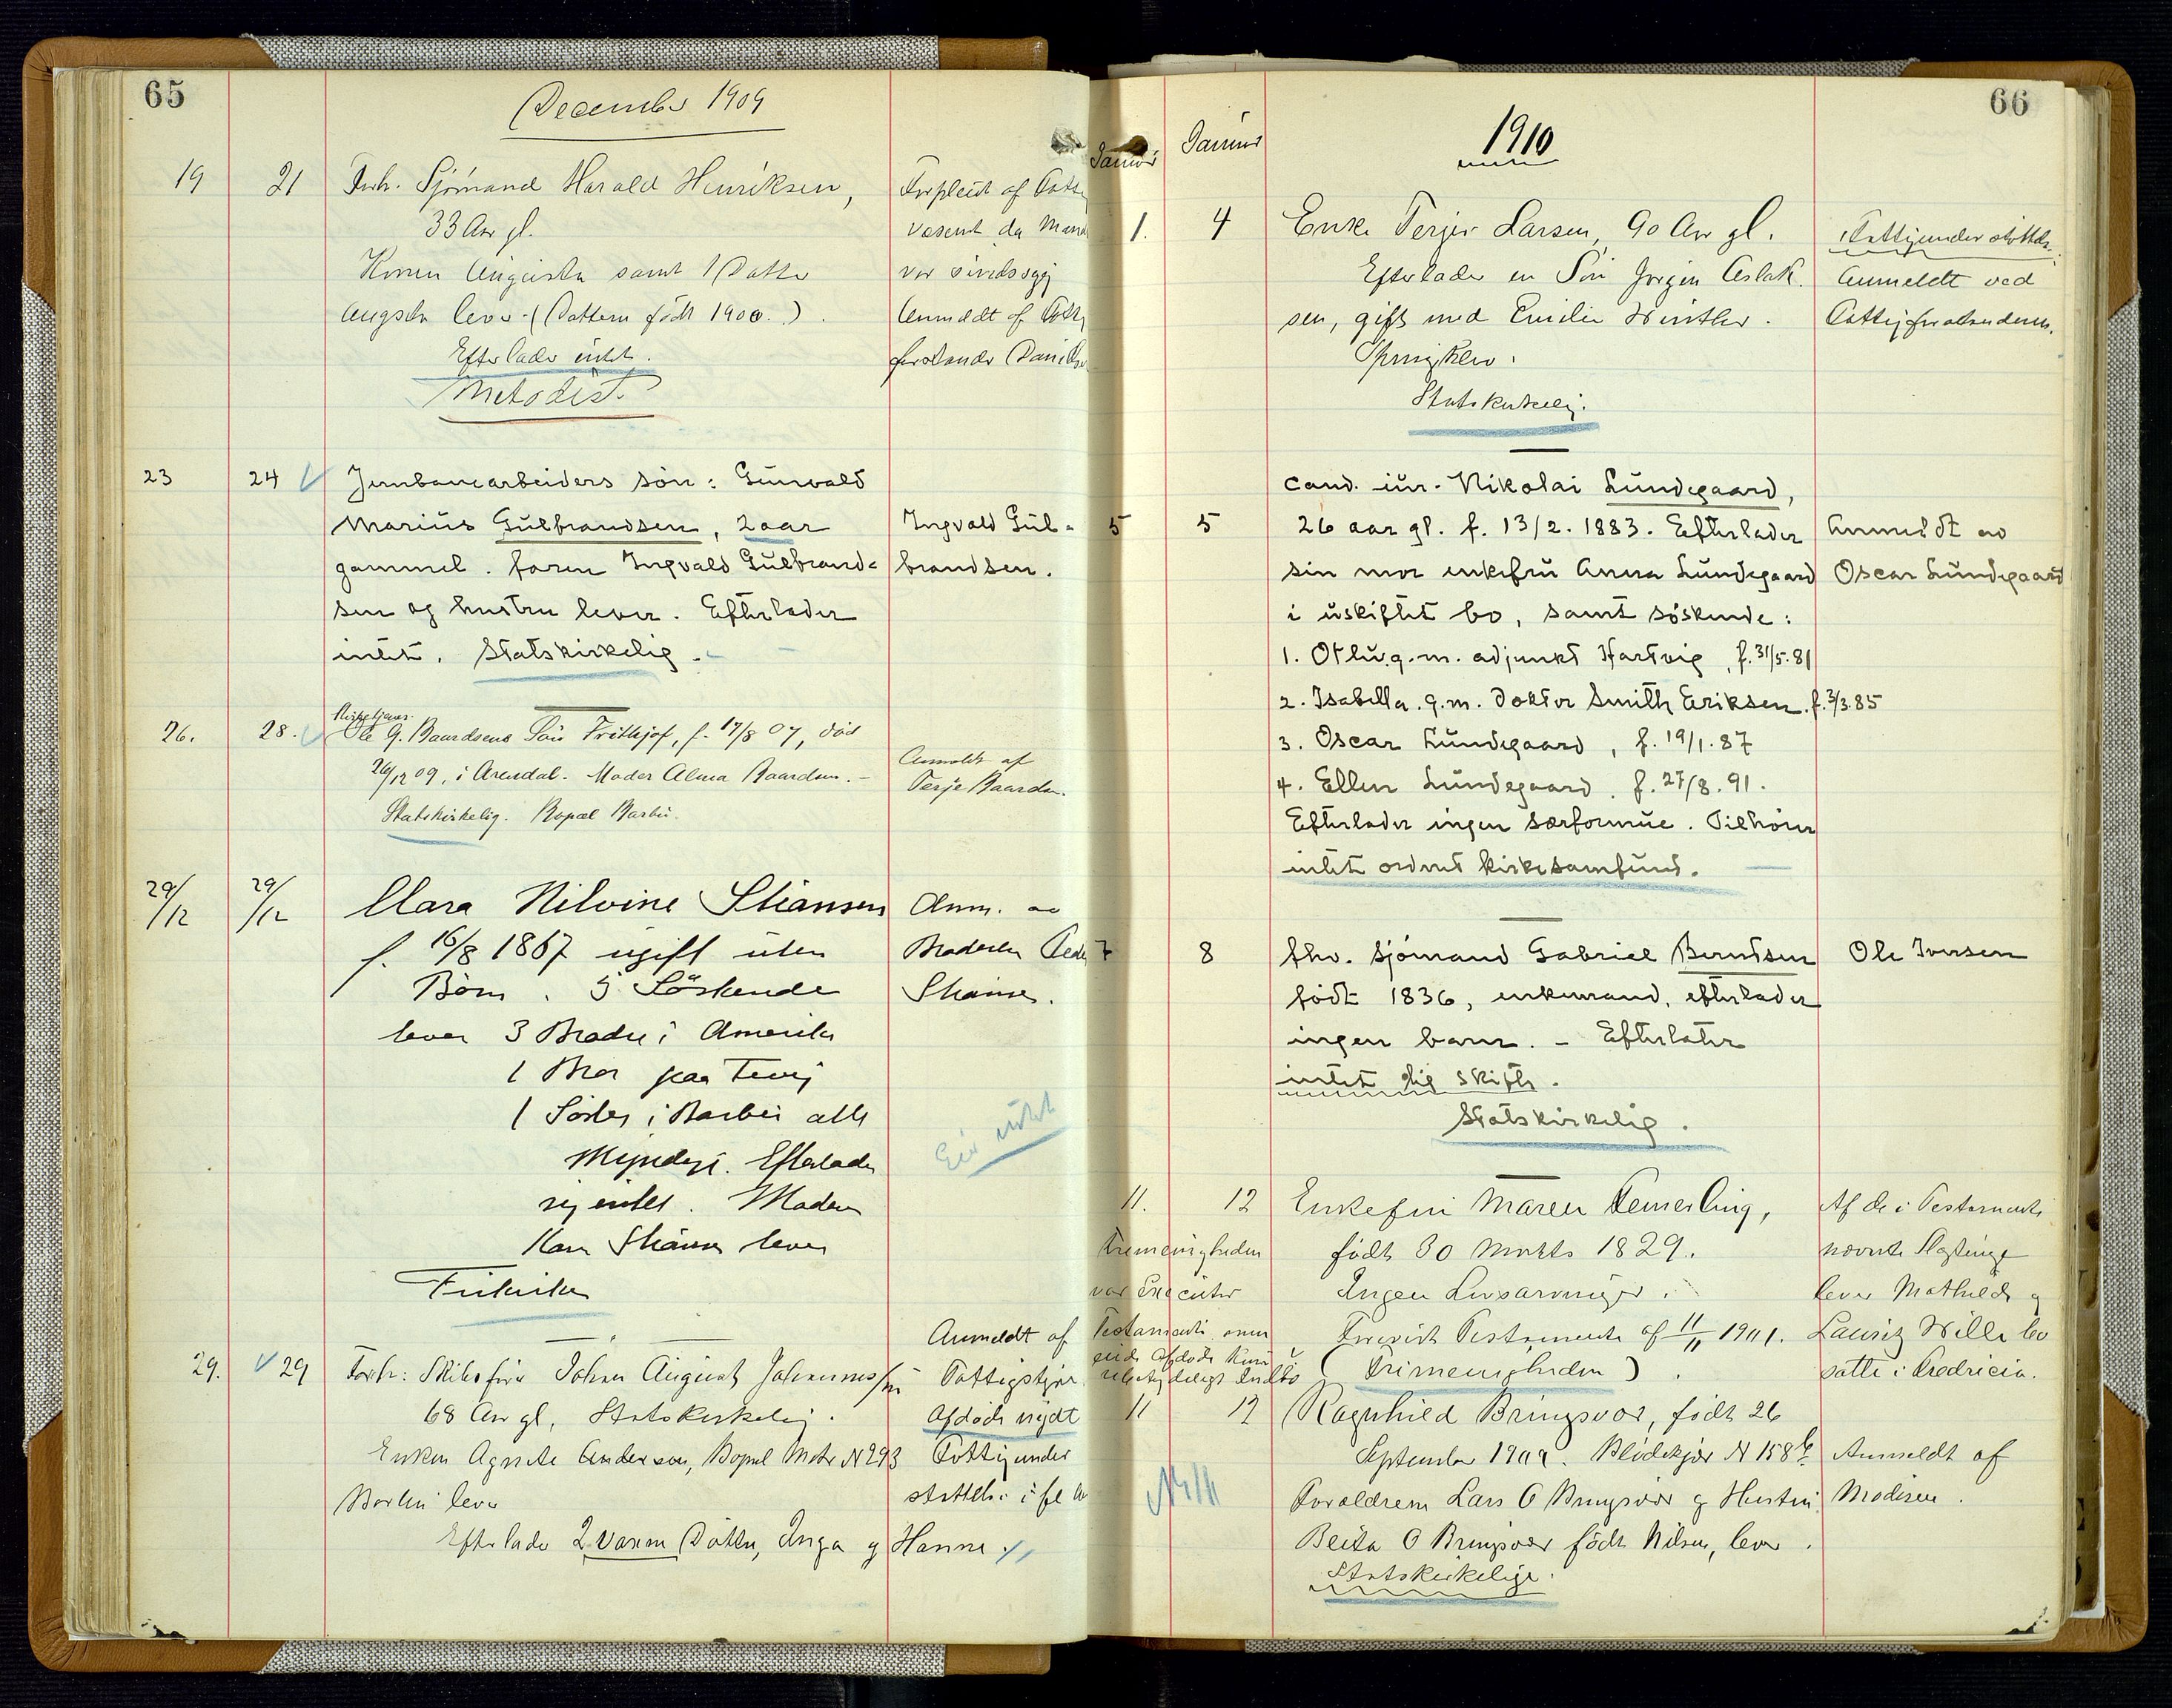 65
December 1909
19 21 Forh. Sjømand Harald Henriksen,
33 Aar gl.
Konen Augusta samt 1 Datter
Augsta lever (Datteren født 1900.)
Efterlader intet.
Metodist.
Forpleiet af Fattig
væsenet da Manden
Anmeldt af Fattig
forstander Danielsen
23 24 Jernbanearbeiders søn: Gunvald
Marius Gulbrandsen, 2 aar
gammel. faren Ingvald Gulbrand-
sen og hustru lever. Efterlader
intet. Statskirkelig.
Ingvald Gul-
brandsen.
26. 28. Kirketjener
Ole G. Baardsens Søn Frithjof, f. 17/8 07, død
26/12 09, i Arendal. Moder Alma Baardsen.
Statskirkelig. Bopæl Barbu.
Anmeldt af
Terje Baardsen.
29/12 29/12 Clara Nilvine Stiansen
f. 16/8 1867 ugift uten
Børn. 5 Söskende
lever 3 Brødre i Amerika
1 Bror paa
1 Søster i Barbu alle
Myndige. Efterlader
sig intet. Moderen
Stiansen lever
Frikirken
Anm. av
Broderen Peder
Stiansen.
Eier intet
29. 29 Forh: Skibsfører Johan August Johannessen
68 Aar gl, Statskirkelig.
Enken Agnete Anderson, Bopæl N 293
Barbu lever
Efterlader 2 voxen Døttre, Inga og Hanna
Anmeldt af
Fattigstyre.
Afdøde nydt
Fattigunder
støttelse
66
Januar Januar
1910
1. 4 Enke Terjer Larsen, 90 Aar gl.
Efterlader en Søn Jørgen Aslak-
sen, gift med Emilie Winther.
Springklev.
Statskirkelig.
Fattigunderstøttelse.
Anmeldt ved
Fattigforstanderen.
5 5 cand. jur. Nikolai Lundegaard,
26 aar gl. f. 13/2. 1883. Efterlader
sin mor enkefru Anna Lundegaard
i uskiftet bo, samt søskende:
1. Otlu. g. m. adjunkt Hartvig, f. 31/5. 81
2. Isabella. g. m. Doktor Smith Eriksen. f. 3/3. 85
3. Oscar Lundegaard, f. 19/1. 87
4. Ellen Lundegaard. f. 27/8. 91.
Efterlader ingen særformue. Tilhører
intet ordnet kirkesamfund.
Anmeldt av
Oscar Lundegaard
7 8 fhv. sjømand Gabriel Berntsen
født 1836, enkemand, efterlader
ingen barn. - Efterlater
intet til skifte.
Statskirkelig.
Ole Iversen
11. 12 Enkefru Maren Temerling,
født 30 Marts 1829.
Ingen Livsarvinger.
Testamente af 11/11 1901.
(Frimenigheden)
Frimenigheden
var Executor
Testamente
Af de i Testamente
nævnte Slægtninge
lever Mathilde og
Lauritz Wille bo
satte i Fredricia.
11 12 Ragnhild Bringsvor, født 26
September 1909. Blødekjær N 158 b
Forældrene Lars O Bringsvor og Hustru
Berta O Bringsvor født Nilsen, lever.
Statskirkelige.
Anmeldt af
Moderen.